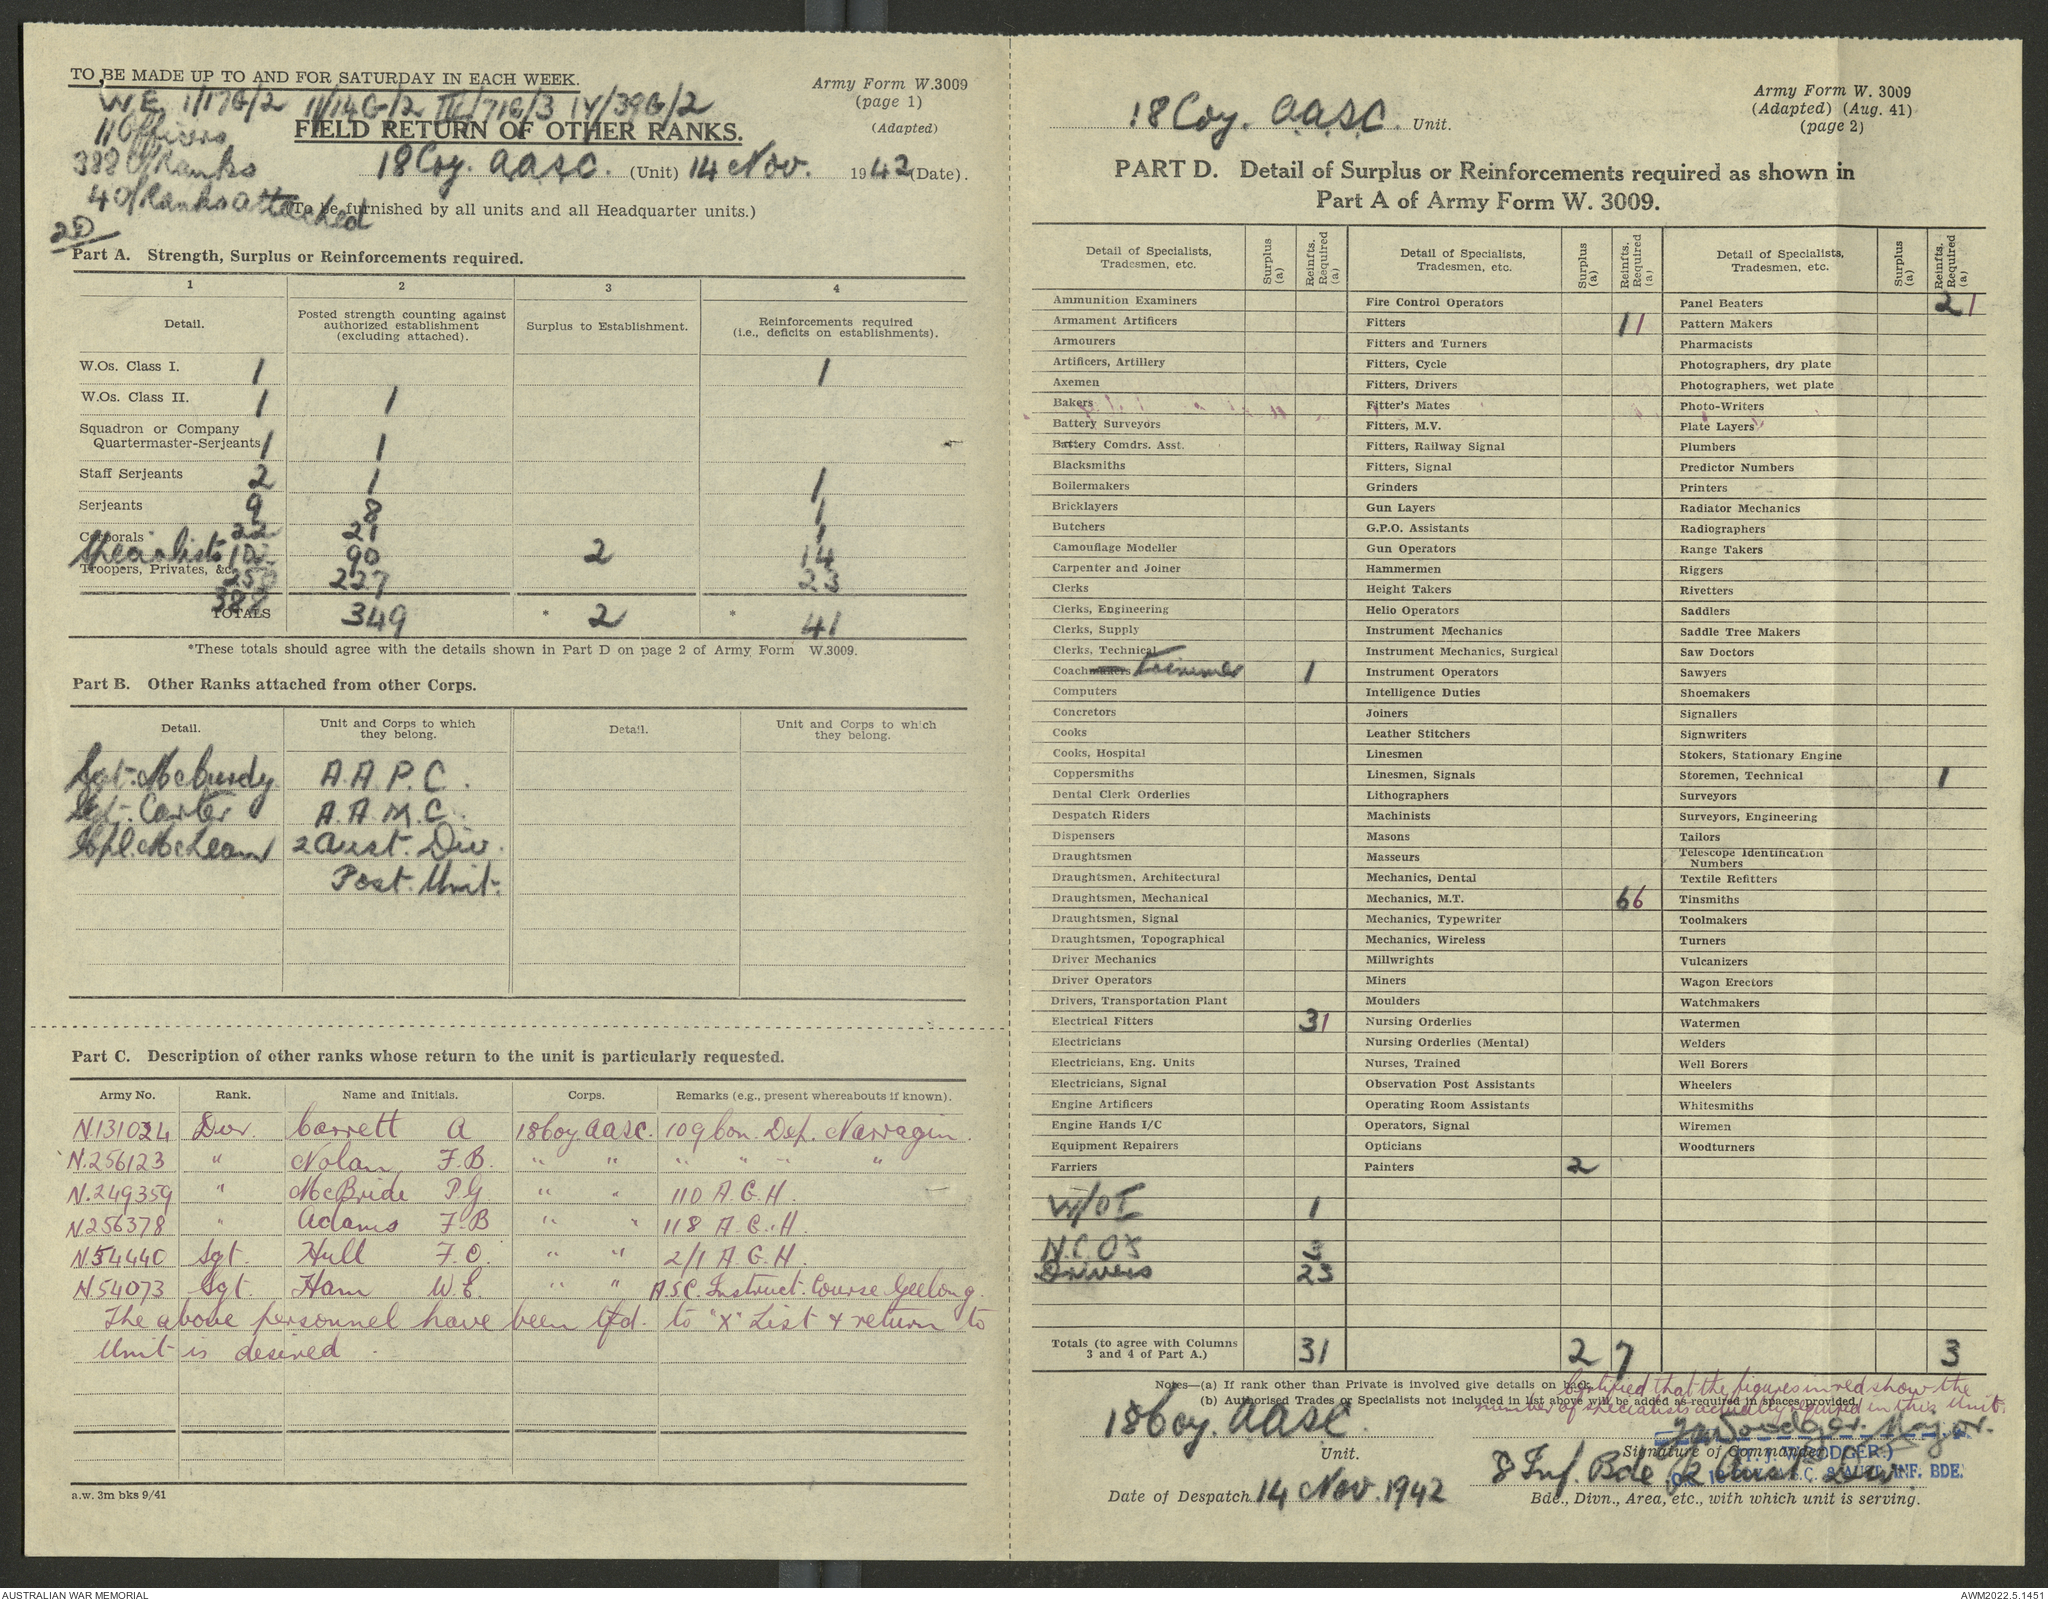 TO BE MADE UP TO AND FOR SATURDAY IN EACH WEEK.
Army Form W.3009
(page 1)
(Adapted)
W.E. 1/17G/2 11/14G/2 III/71G/3 IV/39G/2
11 Officers
388 O/Ranks
4 O/Ranks attached
2D
FIELD RETURN OF OTHER RANKS.
18 Coy. A.A.S.C. (Unit) 14 Nov. 1942 (Date).
(To be furnished by all units and all Headquarter units.)
Part A. Strength, Surplus or Reinforcements required.
1 2 3 4
Detail. Posted strength counting against authorized establishment (excluding attached). Surplus to Establishment. Reinforcements required (i.e., deficits on establishments).
W.Os. Class I. 1 1
W.Os. Class II. 1 1
Squadron or Company
Quartermaster-Serjeants 1 1
Staff Serjeants 2 1 1
Serjeants 9 8 1
Corporals 22 21 1
Specialists 102 90 2 14
Troopers, Privates, &c. 250 227 23
388
TOTALS 349 * 2 * 41
*These totals should agree with the details shown in Part D on page 2 of Army Form W.3009.
Part B. Other Ranks attached from other Corps.
Detail. Unit and Corps to which they belong. Detail. Unit and Corps to which they belong.
Sgt. McCurdy A.A.P.C.
Sgt. Carter A.A.M.C.
Cpl. McLean 2 Aust. Div.
Post. Unit.
Part C. Description of other ranks whose return to the unit is particularly requested.
Army No. Rank. Name and Initials. Corps. Remarks (e.g., present whereabouts if known).
N.131024 Dvr. Carrett A 18 Coy AASC. 109 Con. Dep. Narragin.
N.256123 " Nolan F.B. " " " " " "
N.249359 " McBride P.G " " 110 A.G.H.
N256378 " Adams F.B " " 118 A.G.H.
N.54440 Sgt. Hull F.C. " " 2/1 A.G.H.
N54073 Sgt. Ham W.E. " " A.S.C. Instruct. Course Geelong.
The above personnel have been tfd. to "X" List & return to
Unit is desired.
a.w. 3m bks 9/41
18 Coy. A.A.S.C. Unit.
Army Form W. 3009
(Adapted) (Aug. 41)
(page 2)
PART D. Detail of Surplus or Reinforcements required as shown in
Part A of Army Form W. 3009.
Detail of Specialists, Tradesmen, etc. Surplus (a) Reinfts. Required (a) Detail of Specialists, Tradesmen, etc. Surplus (a) Reinfts. Required (a) Detail of Specialists, Tradesmen, etc. Surplus (a) Reinfts. Required (a)
Ammunition Examiners Fire Control Operators Panel Beaters 2 1
Armament Artificers Fitters 1 1 Pattern Makers
Armourers Fitters and Turners Pharmacists
Artificers, Artillery Fitters, Cycle Photographers, dry plate
Axemen Fitters, Drivers Photographers, wet plate
Bakers Fitter's Mates Photo-Writers
Battery Surveyors Fitters, M.V. Plate Layers
Battery Comdrs. Asst. Fitters, Railway Signal Plumbers
Blacksmiths Fitters, Signal Predictor Numbers
Boilermakers Grinders Printers
Bricklayers Gun Layers Radiator Mechanics
Butchers G.P.O. Assistants Radiographers
Camouflage Modeller Gun Operators Range Takers
Carpenter and Joiner Hammermen Riggers
Clerks Height Takers Rivetters
Clerks, Engineering Helio Operators Saddlers
Clerks, Supply Instrument Mechanics Saddle Tree Makers
Clerks, Technical Instrument Mechanics, Surgical Saw Doctors
Coachmakers Trimmer 1 Instrument Operators Sawyers
Computers Intelligence Duties Shoemakers
Concretors Joiners Signallers
Cooks Leather Stitchers Signwriters
Cooks, Hospital Linesmen Stokers, Stationary Engine
Coppersmiths Linesmen, Signals Storemen, Technical 1
Dental Clerk Orderlies Lithographers Surveyors
Despatch Riders Machinists Surveyors, Engineering
Dispensers Masons Tailors
Draughtsmen Masseurs Telescope Identification Numbers
Draughtsmen, Architectural Mechanics, Dental Textile Refitters
Draughtsmen, Mechanical Mechanics, M.T. 6 6 Tinsmiths
Draughtsmen, Signal Mechanics, Typewriter Toolmakers
Draughtsmen, Topographical Mechanics, Wireless Turners
Driver Mechanics Millwrights Vulcanizers
Driver Operators Miners Wagon Erectors
Drivers, Transportation Plant Moulders Watchmakers
Electrical Fitters 3 1 Nursing Orderlies Watermen
Electricians Nursing Orderlies (Mental) Welders
Electricians, Eng. Units Nurses, Trained Well Borers
Electricians, Signal Observation Post Assistants Wheelers
Engine Artificers Operating Room Assistants Whitesmiths
Engine Hands I/C Operators, Signal Wiremen
Equipment Repairers Opticians Woodturners
Farriers Painters 2
W/O I 1
N.C.O's 3
Drivers 23
Totals (to agree with Columns 3 and 4 of Part A.) 31 2 7 3
Notes—(a) If rank other than Private is involved give details on back.
(b) Authorised Trades or Specialists not included in list above will be added as required in spaces provided.
Certified that the figures in red show the
number of specialists actually required in this Unit.
18 Coy. A.A.S.C.
Unit.
Major.
Signature of Commander
8 Inf. Bde 2 Aust Div
INF. BDE.
Date of Despatch 14 Nov. 1942
Bde., Divn., Area, etc., with which unit is serving.
AUSTRALIAN WAR MEMORIAL
AWM2022.5.1451